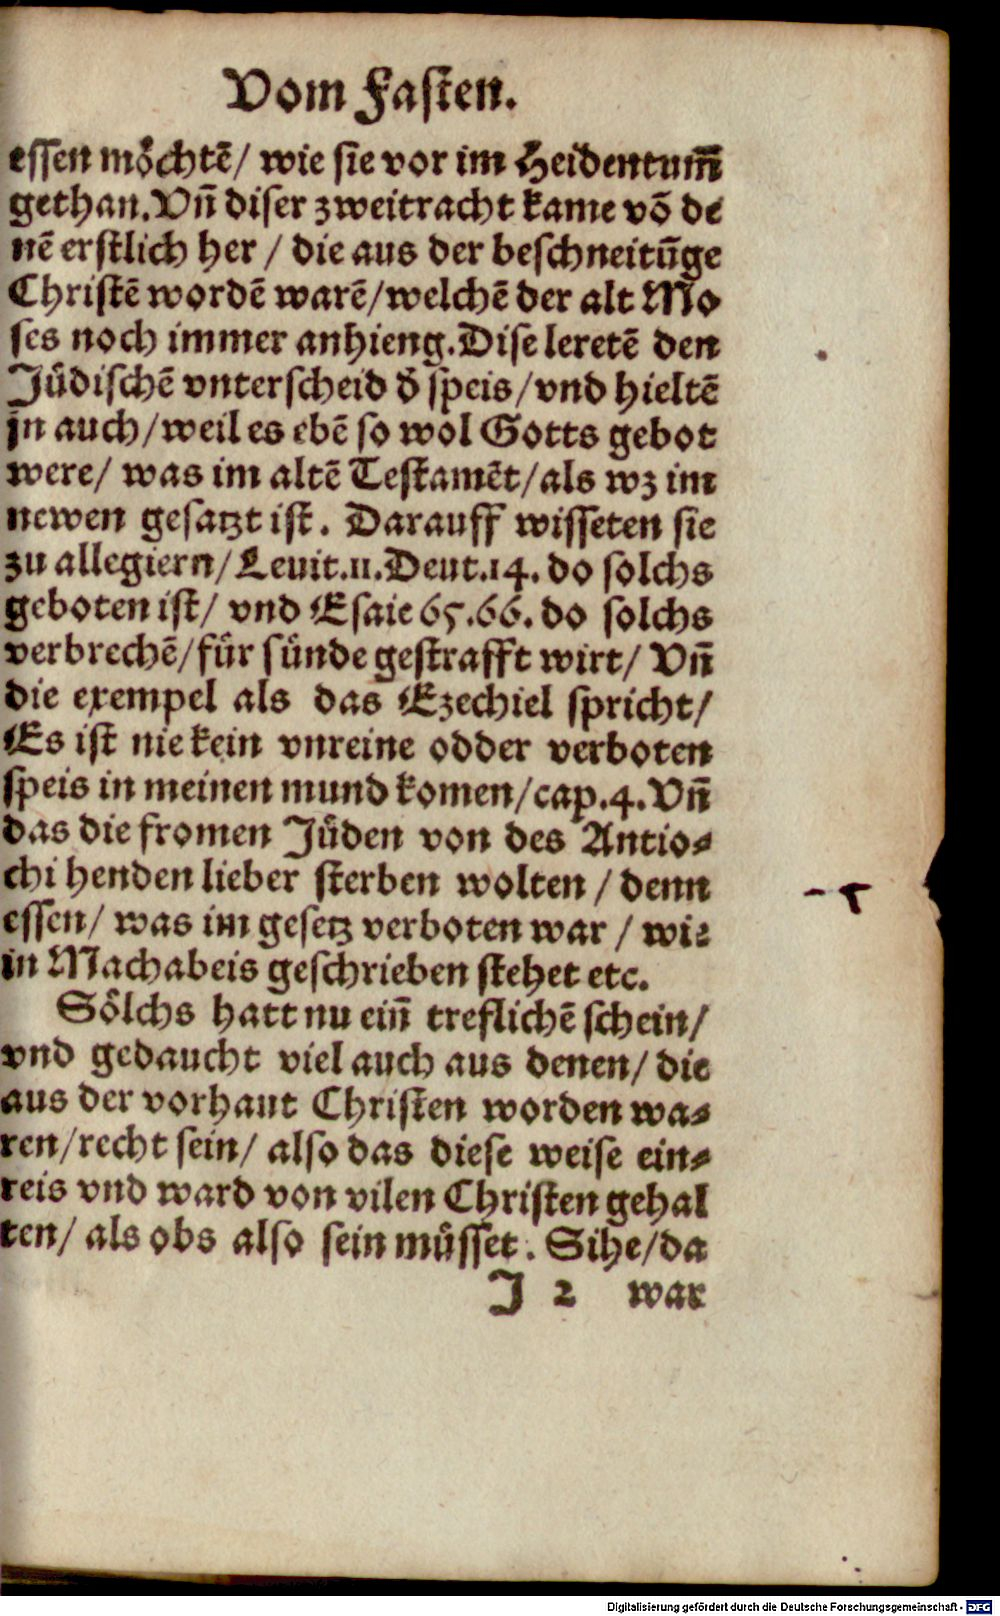 Vom Fasten.
essen möchtē/ wie sie vor im Heidentum̄
gethan. Vn̄ diser zweitracht kame vō de
nē erstlich her / die aus der beschneitūge
Christē wordē warē/welchē der alt Mo
ses noch immer anhieng. Dise leretē den
Jüdischē vnterscheid d̄ speis/vnd hieltē
jn auch/weil es ebē so wol Gotts gebot
were/ was im altē Testamēt/als wz im
newen gesatzt ist. Darauff wisseten sie
zu allegiern/Leuit.11.Deut.14. do solchs
geboten ist/ vnd Esaie 65.66. do solchs
verbrechē/für sünde gestrafft wirt/ Vn̄
die exempel als das Ezechiel spricht/
Es ist nie kein vnreine odder verboten
speis in meinen mund komen/cap.4. Vn̄
das die fromen Jüden von des Antio⸗
chi henden lieber sterben wolten / denn
essen/ was im gesetz verboten war / wie
in Machabeis geschrieben stehet etc.
Sölchs hatt nu ein̄ treflichē schein/
vnd gedaucht viel auch aus denen/ die
aus der vorhaut Christen worden wa⸗
ren/recht sein/ also das diese weise ein⸗
reis vnd ward von vilen Christen gehal
ten/ als obs also sein müsset. Sihe/da
J 2 war
Digitalisierung gefördert durch die Deutsche Forschungsgemeinschaft - DFG